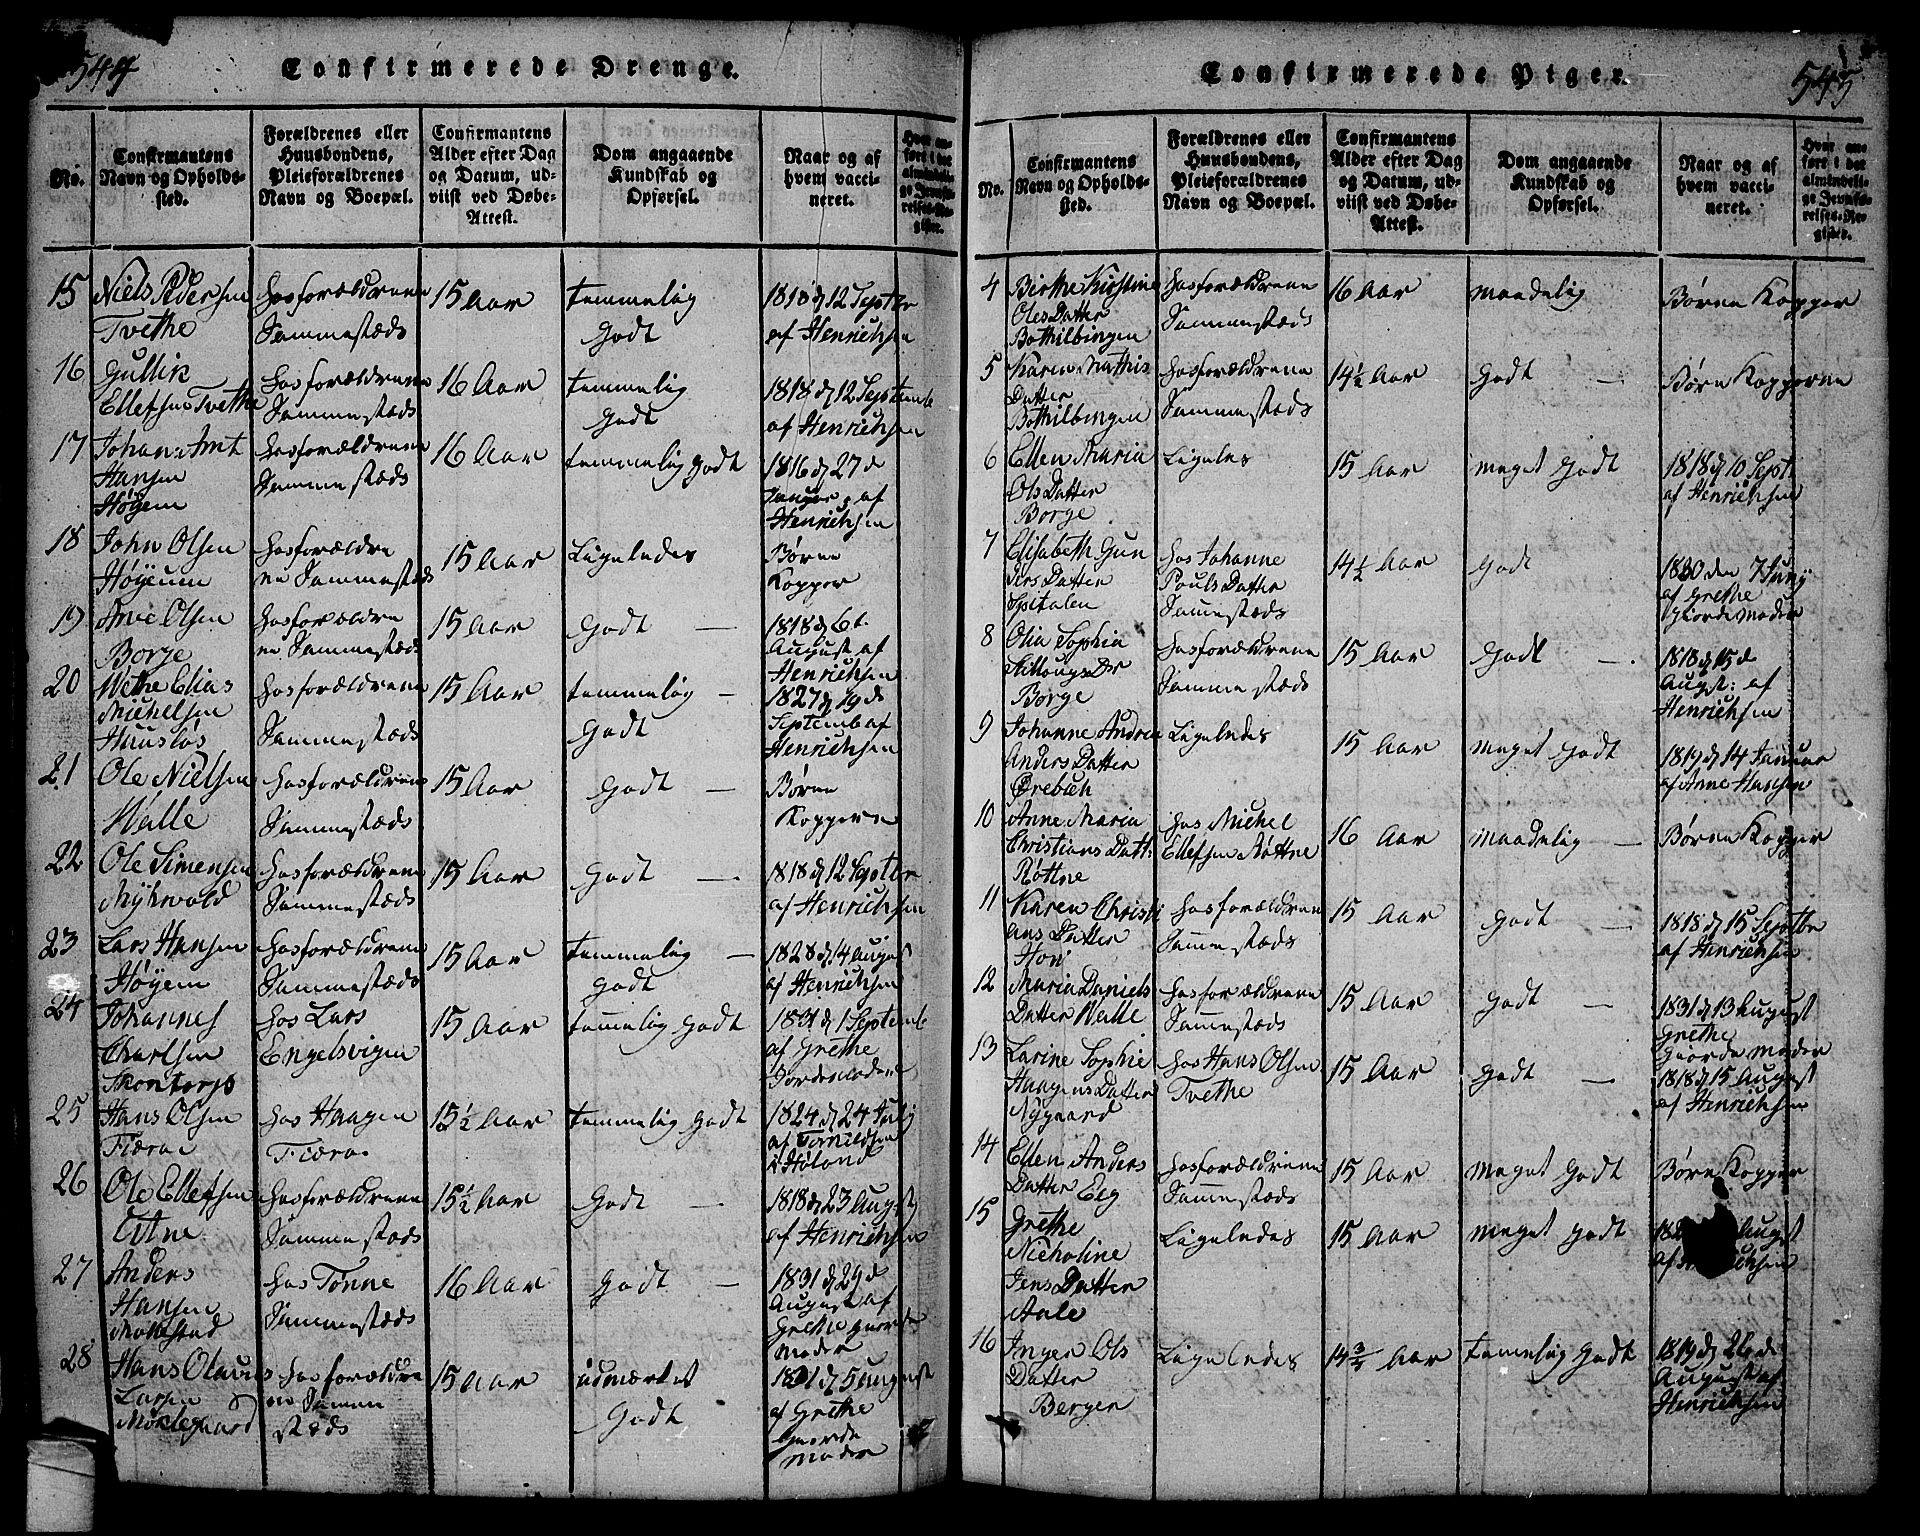 544
Confirmerede Drenge.
No.
Confirmantens
Navn og Opholds-
sted.
Forældrenes eller
Huusbondens,
Pleieforældrenes
Navn og Boepæl.
Confirmantens
Alder efter Dag
og Datum, ud-
viist ved Døbe-
Attest.
Dom angaaende
Kundskab og
Opførsel.
Naar og af
hvem vacci-
neret.
Hvor an-
ført i det
almindeli-
ge Jevnfø-
relses-Re-
gister.
15
Niels Pedersen
Tvethe
hos forældrene
Sammestæds
15 Aar
temmelig
godt
1818 d 12 Septbr
af Henrichsen
16
Gullik
Ellefsen Tvethe
hos forældrene
Sammestæds
16 Aar
temmelig
godt
1818 d 12 Septemb
af Henrichsen
17
Johan Amt
Hansen
Høyem
hos forældrene
Sammestæds
16 Aar
temmelig godt
1816 d 27 d
af
Henrichsen
18
John Olsen
Høyeum
hos forældre
ne Sammestæds
15 Aar
Ligeledes
Børne
Kopper
19
Arve Olsen
Borge
hos forældre
ne Sammestæds
15 Aar
Godt —
1818 d 6t
August af
Henrichsen
20
Methe Elias
Michelsen
Hauslos
hos forældrene
Sammestæds
15 Aar
temmelig —
Godt
1827 d 19 d
Septemb af
Henrichsen
21
Ole Nielsen
Walle
hos forældrene
Sammestæds
15 Aar
Godt —
Børne
Kopperne
22
Ole Simensen
Myhrvold
hos forældrene
Sammestæds
15 Aar
Godt —
1818 d 12 Septbr
af Henrichsen
23
Lars Hansen
Høyem
hos forældrene
Sammestæds
15 Aar
temmelig —
godt
1828 d 14 August
af Henrichsen
24
Johannes
Charlsen
Skontorp
hos Lars
Engelsvigen
15 Aar
temmelig godt
1831 d 1 Septemb
af Grethe
Jordemoder
25
Hans Olsen
Tiæra
hos Haagen
Tiæra
15½ Aar
temmelig godt
1824 d 24 July
af
i Høland
26
Ole Ellefsen
Eitne
hos forældrene
Sammestæds
15½ Aar
Godt —
1818 d 23 August
af Henrichsen
27
Anders
Hansen
Mollestad
hos Tønne
Sammestæds
16 Aar
Godt —
1831 d 29 d
August af
Grethe giorde
moder
28
Hans Olaus
Larsen
Moklegaard
hos forældre
ne Samme
stæds
15 Aar
udmærket
Godt
1831 d 5 August
af Grethe
giorde
moder
545
Confirmerede Piger.
No.
Confirmantens
Navn og Opholds-
sted.
Forældrenes eller
Huusbondens,
Pleieforældrenes
Navn og Boepæl.
Confirmantens
Alder efter Dag
og Datum, ud-
viist ved Døbe-
Attest.
Dom angaaende
Kundskab og
Opførsel.
Naar og af
hvem vacci-
neret.
Hvor an-
ført i det
almindeli-
ge Jevnfø-
relses-Re-
gister.
4
Birthe Kirstine
Oles Datter
Bothilbingen
hos forældrene
Sammestæds
16 Aar
maadelig
Børne Kopper
5
Karen Mathis
Datter
Bothilbingen
hos forældrene
Sammestæds
14½ Aar
godt —
Børne Kopperne
6
Ellen Maria
Ols Datter
Borge
Ligeles
15 Aar
meget godt
1818 d 10 Sept:
af Henrichsen
7
Elisabeth Gun
Pers Datter
Spitalen
hos Johanne
Pouls Datter
Sammestæds
14½ Aar
godt
1830 den 7 Juny
af Grethe
Giordemoder
8
Olia Sophia
Dr
Borge
hos forældrene
Sammestæds
15 Aar
godt —
1818 d 15 d
Augst: af
Henrichsen
9
Johanne Andrea
Anders Datter
Ørebech
Ligeledes
15 Aar
meget godt
1819 d 14 Januar
af Arne Hansen
10
Anne Maria
Christians Datt:
Røttne
hos Michel
Ellefsen Røttne
16 Aar
maadelig —
Børne Kopper
11
Karen Christi
ans Datter
Hovi
hos forældrene
Sammestæds
15 Aar
godt —
1818 d 15 Septbr
af Henrichsen
12
Maria Daniels
Datter Walle
hos forældrene
Sammestæds
15 Aar
godt —
1831 d 13 August
Grethe
Giorde moder
13
Larine Sophie
Haagens Datter
Nygaard
hos Hans Olsen
Tvethe
15 Aar
godt —
1818 d 15 August
af Henrichsen
14
Ellen Anders
Datter Eeg
hos forældrene
Sammestæds
15 Aar
meget godt
Børne Kopper
15
Grethe
Nicholine
Jens Datter
Aale
Ligeledes
15 Aar
meget godt
August
af
16
Inger Ols
Datter
Bergen
Ligeledes
14¾ Aar
temelig godt
1819 d 26 d
August af
Henrichsen